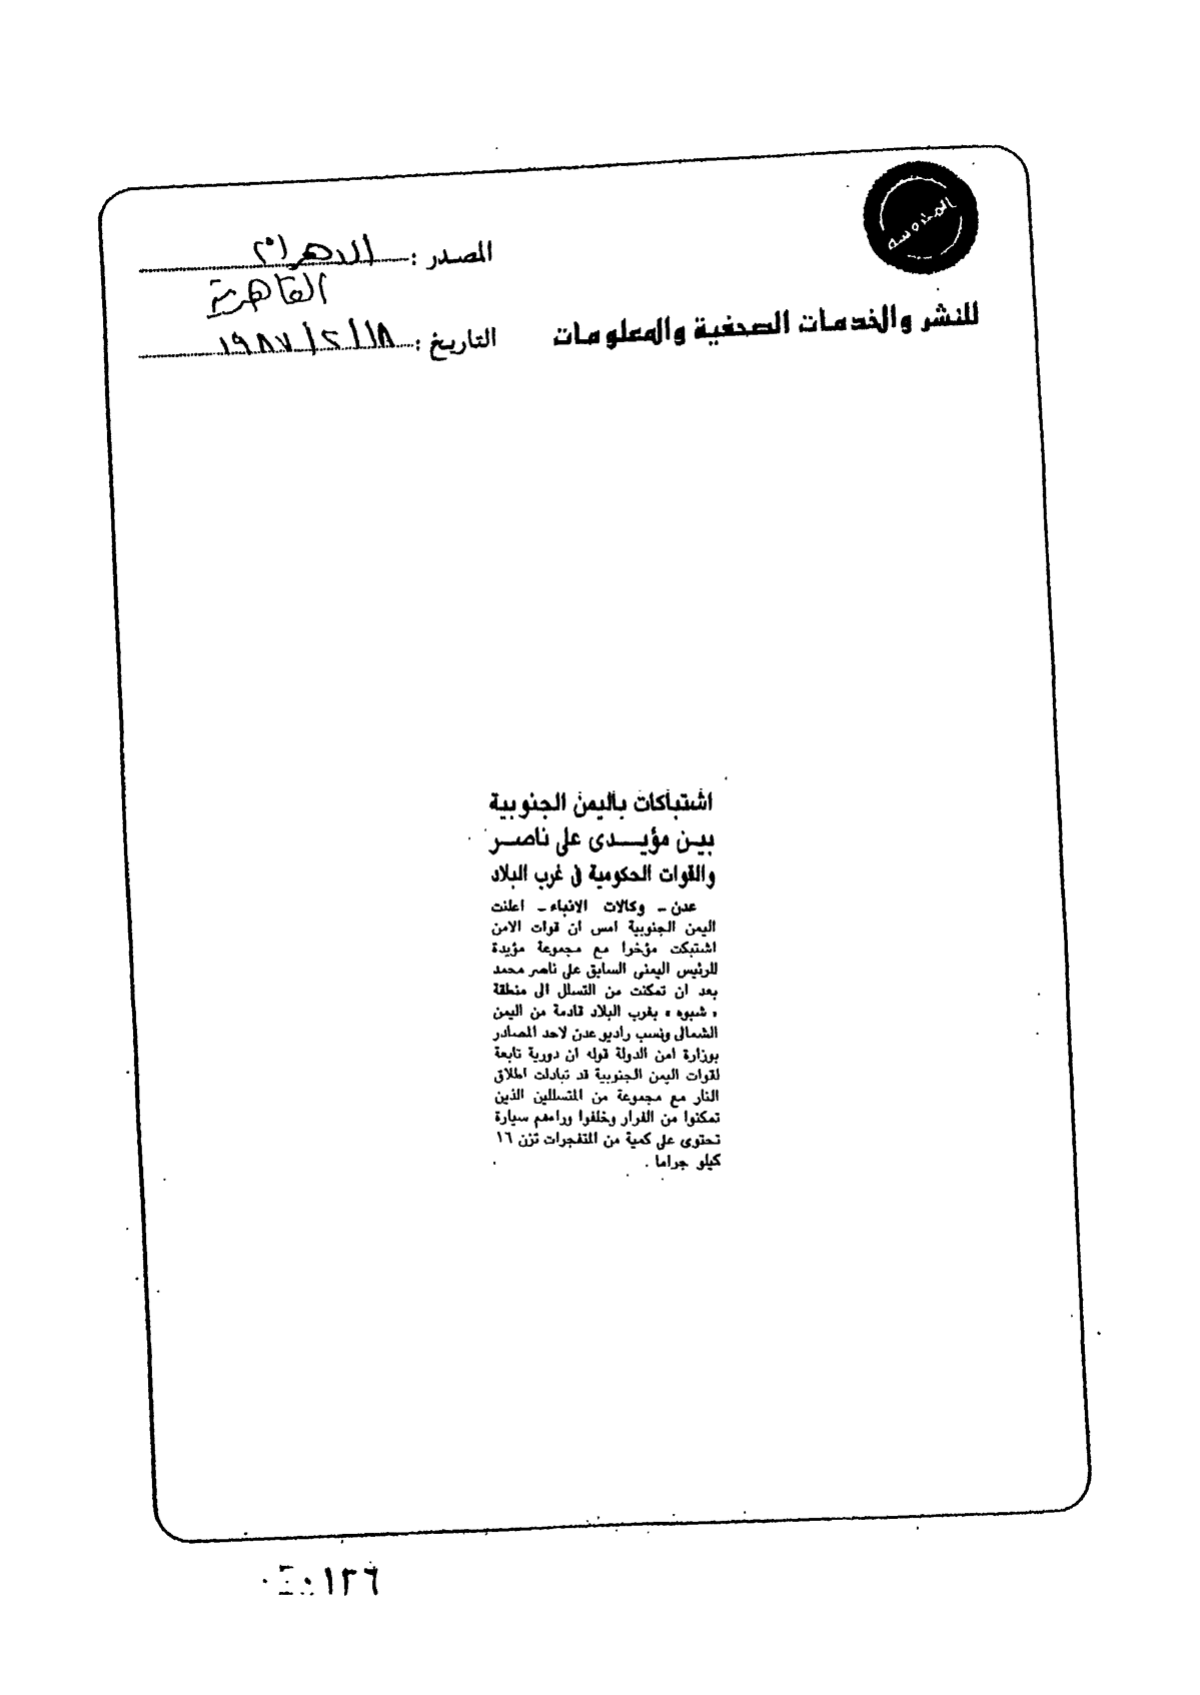 المحروسة
المصدر : الاهرام
القاهرية
للنشر والخدمات الصحفية والمعلومات
التاريخ : ١٩٨٧/٢/١٨
اشتباكات باليمن الجنوبية
بين مؤيدى على ناصر
والقوات الحكومية فى غرب البلاد
عدن ـ وكالات الانباء ـ اعلنت
اليمن الجنوبية امس ان قوات الامن
اشتبكت مؤخرا مع مجموعة مؤيدة
للرئيس اليمنى السابق على ناصر محمد
بعد ان تمكنت من التسلل الى منطقة
« شبوه » بغرب البلاد قادمة من اليمن
الشمالى ونسب راديو عدن لاحد المصادر
بوزارة امن الدولة قوله ان دورية تابعة
لقوات اليمن الجنوبية قد تبادلت اطلاق
النار مع مجموعة من المتسللين الذين
تمكنوا من الفرار وخلفوا وراءهم سيارة
تحتوى على كمية من المتفجرات تزن ١٦
كيلو جراما .